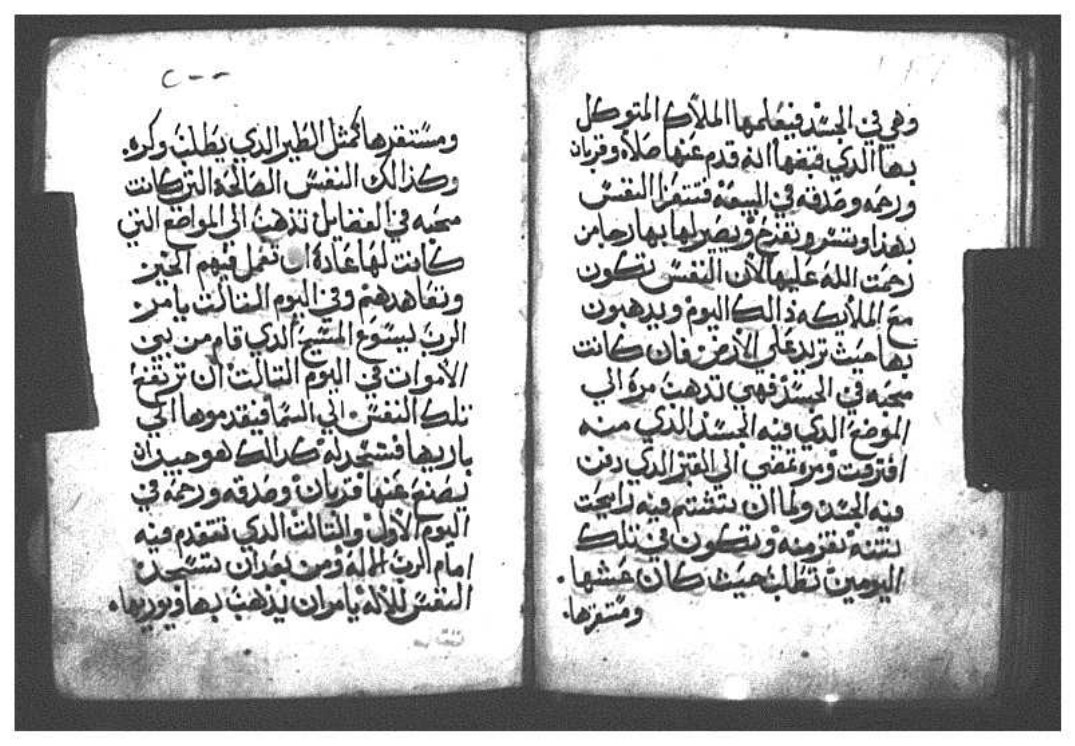 وهي في الجسد فيعلمها الملاك المتوكل
بها الذي قبضها انه قدم عنها صلاه وقربان
ورحمه وصدقه في البيعه فتستقر النفس
بهذا وتسر وتفرح ويصير لها بها رجا من
رحمت الله عليها لان النفس تكون
مع الملايكه ذالك اليوم ويدهبون
بها حيت تريد علي الارض فان كانت
محبه في الجسد فهي تدهب مره الي
الموضع الدي فيه الجسد الدي منه
افترقت ومره تمضي الي القبر الدي دفن
فيه الجسد ولما ان تشتم فيه رايحت
نتنه تفر منه وتكون في تلك
اليومين تطلب حيت كان عشها
ومستقرها.
ومستقرها كمثل الطير الدي يطلب وكره.
وكذالك النفس الصالحه التي كانت
محبه في الفضايل تدهب الي المواضع التي
كانت لها عادة ان تعمل فيهم الخير
وتعاهدهم وفي اليوم التالت يامر
الرب يسوع المسيح الدي قام من بين
الاموات في اليوم التالت ان ترتفع
تلك النفس الي السما فيقدموها الي
باريها فتسجد له كدالك هو جيد ان
يصنع عنها قربان وصدقه ورحمه في
اليوم الاول والتالت الدي تتقدم فيه
امام الرب الاله ومن بعد ان تسجد
النفس للاله يامر ان يدهب بها ويوريها.